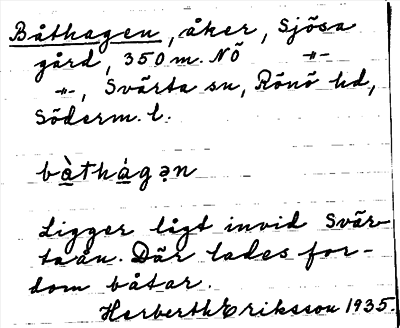 Båthagen, åker, Sjösa
gård, 350 m. NÖ -"-
-"-, Svärta sn, Rönö hd,
Söderm. l.
bàthágən
Ligger lågt invid Svär-
taån. Där lades for-
dom båtar.
Herberth Eriksson 1935.